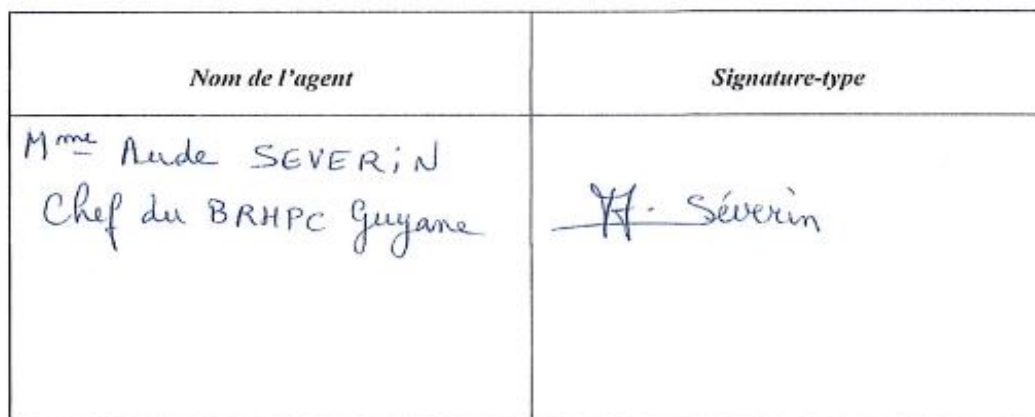 Nom de l'agent
Signature-type
Mme Aude SEVERIN
Chef du BRHPC Guyane
A. Séverin